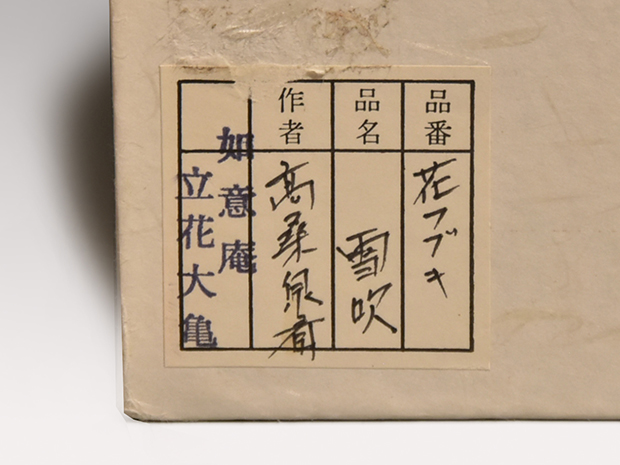 品番
花フブキ
品名
雪吹
作者
高桑泉斎
如意庵
立花大亀